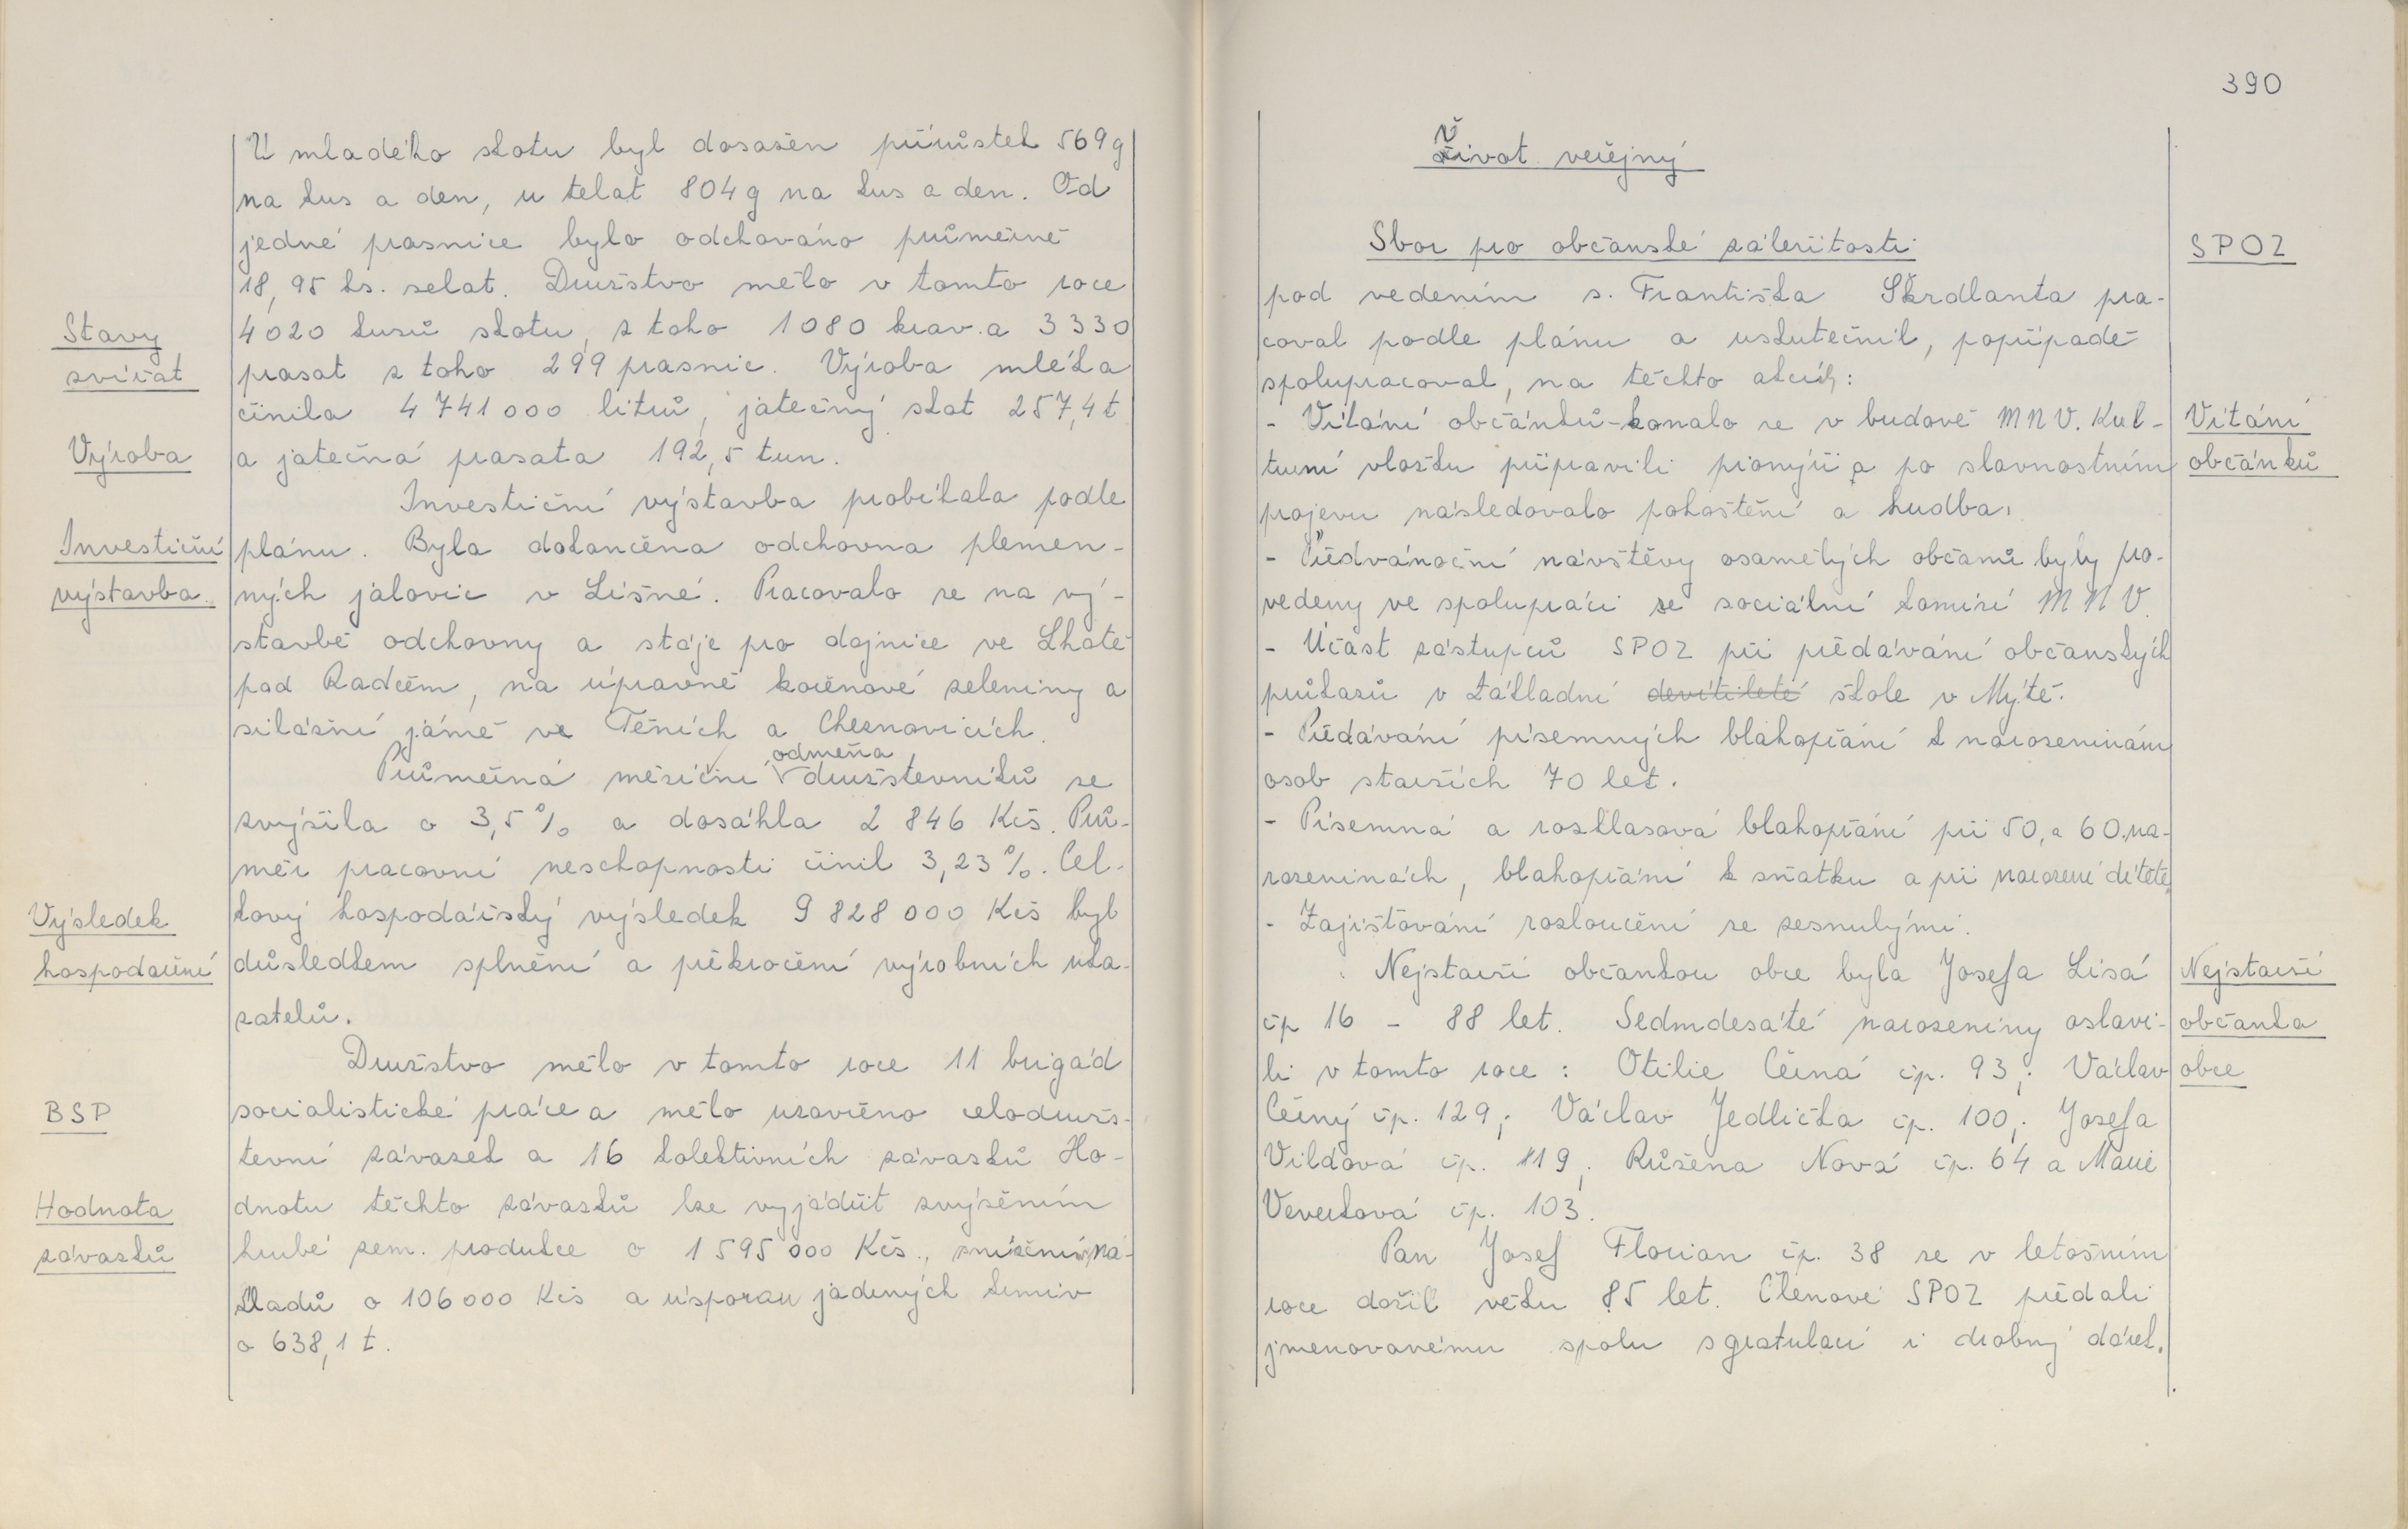 U mladého skotu byl dosažen přírůstek 569 g
na kus a den, u telat 804 g na kus a den. Od
jedné prasnice bylo odchováno průměrně
18,95 ks. selat. Družstvo mělo v tomto roce
Stavy
zvířat
4020 kusů skotu, z toho 1080 krav a 3330
prasat z toho 299 prasnic. Výroba mléka
činila 4 741 000 litrů, jatečný skot 257,4 t
Výroba
a jatečná prasata 192,5 tun.
Investiční výstavba probíhala podle
Investiční
výstavba.
plánu. Byla dokončena odchovna plemen-
ných jalovic v Líšné. Pracovalo se na vý-
stavbě odchovny a stáje pro dojnice ve Lhotě
pod Radčem, na úpravně kořenové zeleniny a
silážní jámě ve Těních a Cheznovicích.
odměňa
Průměrná měsíční družstevníků se
zvýšila o 3,5 % a dosáhla 2 846 Kčs. Prů-
měr pracovní neschopnosti činil 3,23 %. Cel-
Výsledek
hospodaření
kový hospodářský výsledek 9 828 000 Kčs byl
důsledkem splnění a překročení výrobních uka-
zatelů.
Družstvo mělo v tomto roce 11 brigád
BSP
socialistické práce a mělo uzavřeno celodruž-
tevní závazek a 16 kolektivních závazků Ho-
Hodnota
závazků
dnotu těchto závazků lze vyjádřit zvýšením
hrubé zem. produkce o 1 595 000 Kčs., snížením ná-
kladů o 106 000 Kčs a úsporou jadrných krmiv
o 638,1 t.
390
Život veřejný
Sbor pro občanské záležitosti
SPOZ
pod vedením s. Františka Škrdlanta pra-
coval podle plánu a uskutečnil, popřípadě
spolupracoval, na těchto akcích:
- Vítání občánků - konalo se v budově MNV. Kul-
Vítání
občánků
turní vložku připravili pionýři a po slavnostním
projevu následovalo pohoštění a hudba.
- Předvánoční návštěvy osamělých občanů byly pro-
vedeny ve spolupráci se sociální komisí MNV.
- Účast zástupců SPOZ při předávání občanských
průkazů v Základní devítileté škole v Mýtě.
- Předávání písemných blahopřání k narozeninám
osob starších 70 let.
- Písemná a rozhlasová blahopřání při 50. a 60. na-
rozeninách, blahopřání k sňatku a při narození dítěte.
- Zajišťování rozloučení se zesnulými.
Nejstarší občankou obce byla Josefa Lisá
Nejstarší
občanka
obce
čp 16 - 88 let. Sedmdesáté narozeniny oslavi-
li v tomto roce: Otilie Černá čp. 93; Václav
Černý čp. 129; Václav Jedlička čp. 100; Josefa
Vildová čp. 119; Růžena Nová čp. 64 a Marie
Veverková čp. 103.
Pan Josef Florian čp. 38 se v letošním
roce dožil věku 85 let. Členové SPOZ předali
jmenovanému spolu s gratulací i drobný dárek.